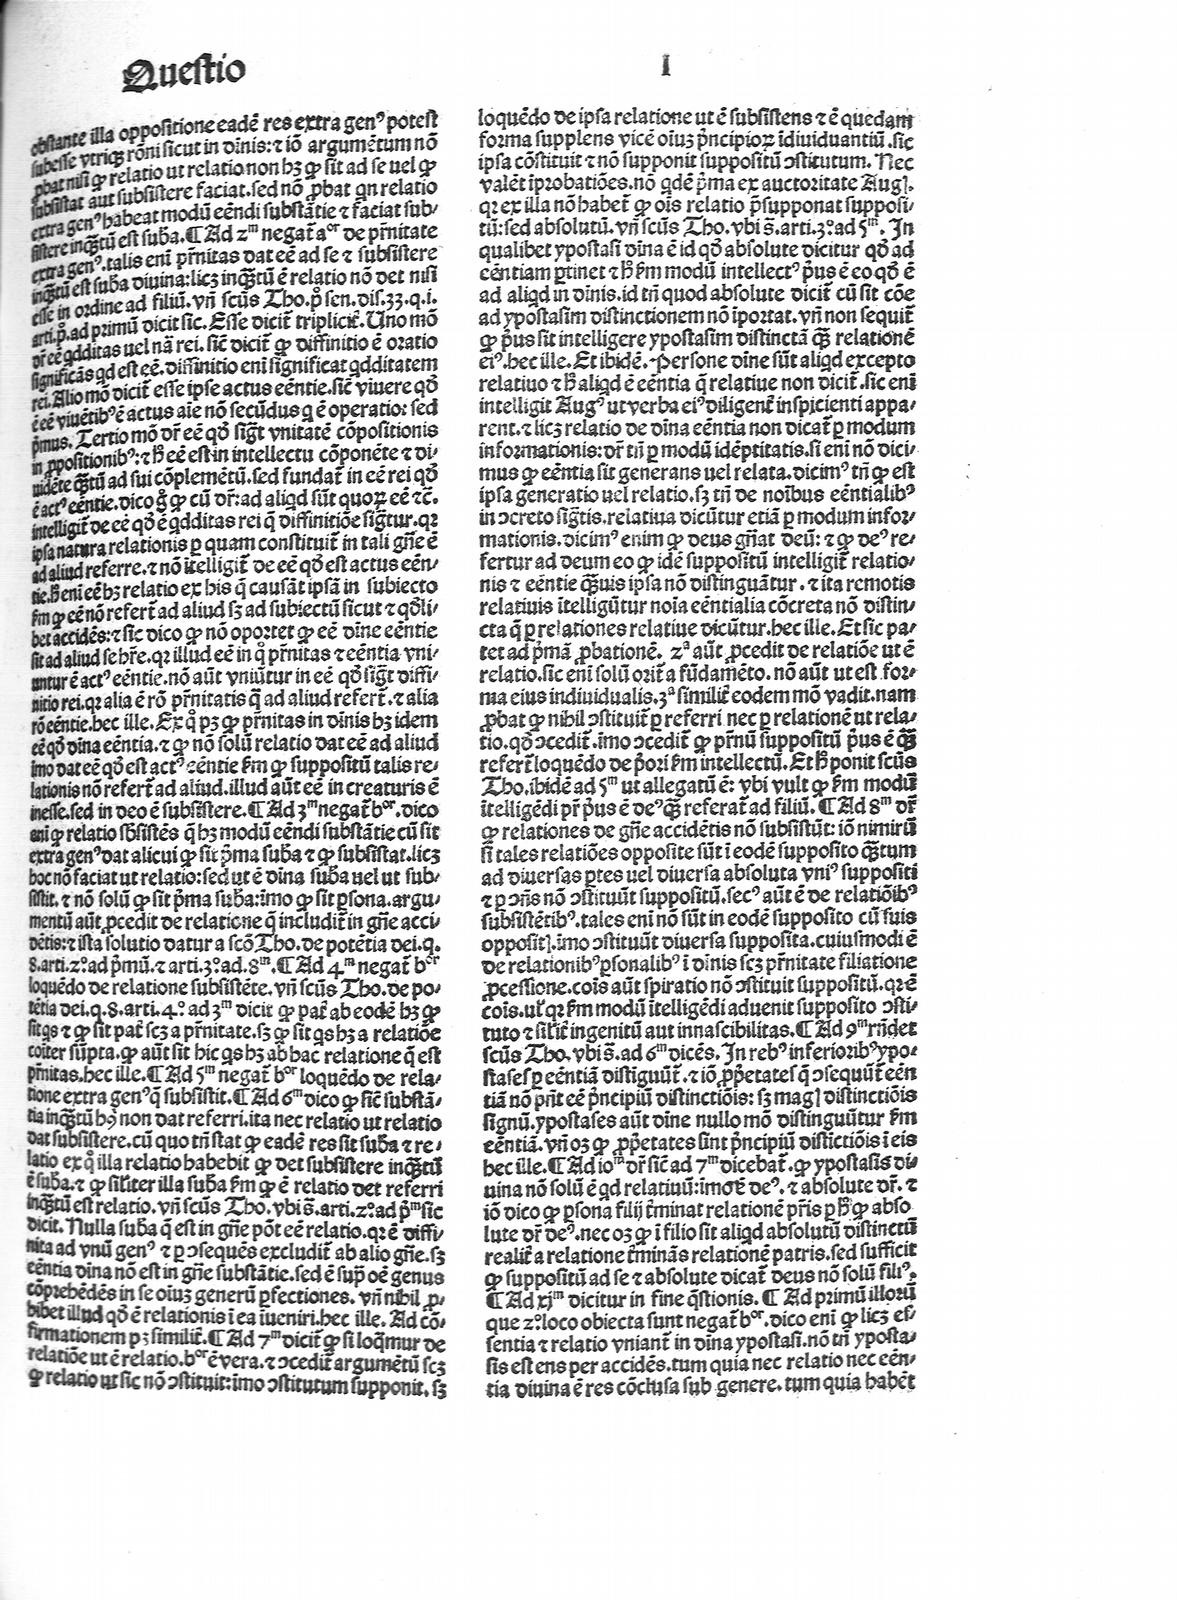 Questio
I
obstante illa oppositione eadē res extra genꝰ potest
subesse vtriqꝫ rōni sicut in dinis: ⁊ iō argumētum nō
ꝓbat nisi ꝙ relatio ut relatio non hꝫ ꝙ sit ad se uel ꝙ
subsistat aut subsistere faciat. sed nō ꝓbat qn relatio
extra genꝰ habeat modū eēndi substātie ⁊ faciat sub⸗
sistere inqꝫtū est suba. ¶ Ad 2ᵐ negat̄ aᵒʳ de pr̄nitate
extra genꝰ. talis enī pr̄nitas dat eē ad se ⁊ subsistere
inqꝫtū est suba diuina: licꝫ inqꝫtū ē relatio nō det nisi
esse in ordine ad filiū. vn̄ scūs Tho. p̊ sen. dis. 33. q. i.
arti. p̊. ad primū dicit sic. Esse dicit̄ triplicit̄. Uno mō
dr̄ eē qdditas uel nā rei. sic̄ dicit̄ ꝙ diffinitio ē oratio
significās qd est eē. diffinitio enī significat qdditatem
rei. Alio mō dicit̄ esse ipse actus eēntie. sic̄ viuere qd̄
ē eē viuētibꝰ ē actus aīe nō secūdus q ē operatio: sed
p̄mus. Tertio mō dr̄ eē qd̄ sigt̄ vnitatē cōpositionis
in ꝓpositionibꝰ: ⁊ h̄ eē est in intellectu cōponēte ⁊ di⸗
uidēte qꝫtū ad sui cōplemētū. sed fundat̄ in eē rei qd̄
ē actꝰ eēntie. dico g̊ ꝙ cū dr̄: ad aliqd sūt quoꝝ eē ⁊c̄.
intelligit̄ de eē qd̄ ē qdditas rei q̄ diffinitiōe sigt̄ur. qꝛ
ipsa natura relationis ꝑ quam constituit̄ in tali gn̄e ē
ad aliud referre. ⁊ nō ītelligit̄ de eē qd̄ est actus eēn⸗
tie. h̄ eni eē hꝫ relatio ex his q̄ causāt ipsā in subiecto
fm̄ ꝙ eē nō refert̄ ad aliud sꝫ ad subiectū sicut ⁊ qd̄li⸗
bet accidēs: ⁊ sic dico ꝙ nō oportet ꝙ eē dīne eēntie
sit ad aliud se hr̄e. qꝛ illud eē in q̊ pr̄nitas ⁊ eēntia vni⸗
untur ē actꝰ eēntie. nō aūt vniūtur in eē qd̄ sigt̄ diffi⸗
nitio rei. qꝛ alia ē rō pr̄nitatis q̄ ad aliud refert̄. ⁊ alia
rō eēntie. hec ille. Ex q̊ pꝫ ꝙ pr̄nitas in dīnis hꝫ idem
eē qd̄ dīna eēntia. ⁊ ꝙ nō solū relatio dat eē ad aliud
īmo dat eē qd̄ est actꝰ eēntie fm̄ ꝙ suppositū talis re⸗
lationis nō refert̄ ad aliud. illud aūt eē in creaturis ē
inesse. sed in deo ē subsistere. ¶ Ad 3ᵐ negat̄ bᵒʳ. dico
eni ꝙ relatio sb̄sistēs q̄ hꝫ modū eēndi substātie cū sit
extra genꝰ dat alicui ꝙ sit p̄ma suba ⁊ ꝙ subsistat. licꝫ
hoc nō faciat ut relatio: sed ut ē dīna suba uel ut sub⸗
sistit. ⁊ nō solū ꝙ sit p̄ma suba: imo ꝙ sit ꝑsona. argu⸗
mentū aūt ꝓcedit de relatione q̄ includit̄ in gn̄e acci⸗
dētis: ⁊ ista solutio datur a scō Tho. de potētia dei. q.
8. arti. 2º. ad p̄mū. ⁊ arti. 3º. ad. 8ᵐ. ¶ Ad 4ᵐ negat̄ bᵒʳ
loquēdo de relatione subsistēte. vn̄ scūs Tho. de po⸗
tētia dei. q. 8. arti. 4º. ad 3ᵐ dicit ꝙ pat̄ ab eodē hꝫ ꝙ
sit qs ⁊ ꝙ sit pat̄ scꝫ a pr̄nitate. sꝫ ꝙ sit qs hꝫ a relatiōe
cōiter sūpta. ꝙ aūt sit hic qs hꝫ ab hac relatione q̄ est
pr̄nitas. hec ille. ¶ Ad 5ᵐ negat̄ bᵒʳ loquēdo de rela⸗
tione extra genꝰ q̄ subsistit. ¶ Ad 6ᵐ dico ꝙ sic̄ substā⸗
tia inqꝫtū hꝰ non dat referri. ita nec relatio ut relatio
dat subsistere. cū quo tn̄ stat ꝙ eadē res sit suba ⁊ re⸗
latio ex q̊ illa relatio habebit ꝙ det subsistere inqꝫtū
ē suba. ⁊ ꝙ silīter illa suba fm̄ ꝙ ē relatio det referri
inqꝫtū est relatio. vn̄ scūs Tho. vbi s̄. arti. 2º. ad p̄ᵐ sic
dicit. Nulla suba q̄ est in gn̄e pōt eē relatio. qꝛ ē diffi⸗
nita ad vnū genꝰ ⁊ ꝑ ↄsequēs excludit̄ ab alio gn̄e. sꝫ
eēntia dīna nō est in gn̄e substātie. sed ē sup̄ oē genus
cōprehēdēs in se oīuꝫ generū ꝑfectiones. vn̄ nihil ꝓ⸗
hibet illud qd̄ ē relationis ī ea īueniri. hec ille. Ad cō⸗
firmationem pꝫ similit̄. ¶ Ad 7ᵐ dicit̄ ꝙ si loqmur de
relatiōe ut ē relatio. bᵒʳ ē vera. ⁊ ↄcedit̄ argumētū scꝫ
ꝙ relatio ut sic nō ↄstituit: īmo ↄstitutum supponit. sꝫ
loquēdo de ipsa relatione ut ē subsistens ⁊ ē quedam
forma supplens vicē oīuꝫ p̄ncipioꝝ īdiuiduantiū. sic
ipsa cōstituit ⁊ nō supponit suppositū ↄstitutum. Nec
valēt īprobatiōes. nō qdē p̄ma ex auctoritate Augꝭ.
qꝛ ex illa nō habet̄ ꝙ oīs relatio p̄supponat supposi⸗
tū: sed absolutū. vn̄ scūs Tho. vbi s̄. arti. 3º. ad 5ᵐ. In
qualibet ypostasi dīna ē id qd̄ absolute dicitur qd̄ ad
eēntiam ꝑtinet ⁊ h̄ fm̄ modū intellectꝰ p̄us ē eo qd̄ ē
ad aliqd in dīnis. id tn̄ quod absolute dicit̄ cū sit cōe
ad ypostasim distinctionem nō īportat. vn̄ non sequit̄
ꝙ p̄us sit intelligere ypostasim distinctā qꝫ relationē
eiꝰ. hec ille. Et ibidē. Persone dīne sūt aliqd excepto
relatiuo ⁊ h̄ aliqd ē eēntia q̄ relatiue non dicit̄. sic enī
intelligit Augꝰ ut verba eiꝰ diligent̄ inspicienti appa⸗
rent. ⁊ licꝫ relatio de dīna eēntia non dicat̄ ꝑ modum
informationis: dr̄ tn̄ ꝑ modū idēptitatis. si eni nō dici
mus ꝙ eēntia sit generans uel relata. dicimꝰ tn̄ ꝙ est
ipsa generatio uel relatio. sꝫ tn̄ de noībus eēntialibꝰ
in ↄcreto sigt̄is. relatiua dicūtur etiā ꝑ modum infor⸗
mationis. dicimꝰ enim ꝙ deus gn̄at deū: ⁊ ꝙ deꝰ re⸗
fertur ad deum eo ꝙ idē suppositū intelligit̄ relatio⸗
nis ⁊ eēntie qꝫuis ipsa nō distinguātur. ⁊ ita remotis
relatiuis ītelligūtur noīa eēntialia cōcreta nō distin⸗
cta q̄ ꝑ relationes relatiue dicūtur. hec ille. Et sic pa⸗
tet ad p̄mā ꝓbationē. 2ᵃ aūt ꝓcedit de relatiōe ut ē
relatio. sic enī solū orit̄ a fūdamēto. nō aūt ut est for⸗
ma eius indiuidualis. 3ᵃ similit̄ eodem mō vadit. nam
ꝓbat ꝙ nihil ↄstituit̄ ꝑ referri nec ꝑ relationē ut rela⸗
tio. qd̄ ↄcedit̄. īmo ↄcedit̄ ꝙ pr̄nū suppositū p̄us ē qꝫ
refert̄ loquēdo de p̄ori fm̄ intellectū. Et h̄ ponit scūs
Tho. ibidē ad 5ᵐ ut allegatū ē: vbi vult ꝙ fm̄ modū
ītelligēdi pr̄ p̄us ē deꝰ qꝫ referat̄ ad filiū. ¶ Ad 8ᵐ dr̄
ꝙ relationes de gn̄e accidētis nō subsistūt: iō nimirū
si tales relatiōes opposite sūt ī eodē supposito qꝫtum
ad diuersas ꝑtes uel diuersa absoluta vniꝰ suppositi
⁊ ꝑ ↄn̄s nō ↄstituūt suppositū. secꝰ aūt ē de relatiōibꝰ
subsistētibꝰ. tales enī nō sūt in eodē supposito cū suis
oppositꝭ. īmo ↄstituūt diuersa supposita. cuiusmodi ē
de relationibꝰ ꝑsonalibꝰ ī dīnis scꝫ pr̄nitate filiatione
ꝓcessione. cōis aūt spiratio nō ↄstituit suppositū. qꝛ ē
cōis. ul̄ qꝛ fm̄ modū ītelligēdi aduenit supposito ↄsti⸗
tuto ⁊ silit̄ ingenitū aut innascibilitas. ¶ Ad 9ᵐ rn̄det
scūs Tho. vbi s̄. ad 6ᵐ dicēs. In rebꝰ inferioribꝰ ypo⸗
stases ꝑ eēntiā distīguūt̄. ⁊ iō ꝓp̄etates q̄ ↄsequūt̄ eēn
tiā nō pn̄t eē p̄ncipiū distinctiōis: sꝫ magꝭ distinctiōis
signū. ypostases aūt dīne nullo mō distinguūtur fm̄
eēntiā. vn̄ oꝫ ꝙ ꝓp̄etates sint p̄ncipiū distīctiōis ī eis
hec ille. ¶ Ad ioᵐ dr̄ sic̄ ad 7ᵐ dicebat̄. ꝙ ypostasis di⸗
uina nō solū ē qd relatiuū: īmo ē deꝰ. ⁊ absolute dr̄. ⁊
iō dico ꝙ ꝑsona filij t̄minat relationē pr̄is ꝑ h̄ ꝙ abso
lute dr̄ deꝰ. nec oꝫ ꝙ ī filio sit aliqd absolutū distinctū
realit̄ a relatione t̄minās relationē patris. sed sufficit
ꝙ suppositū ad se ⁊ absolute dicat̄ deus nō solū filiꝰ.
¶ Ad xjᵐ dicitur in fine qstionis. ¶ Ad primū illorū
que 2º. loco obiecta sunt negat̄ bᵒʳ. dico eni ꝙ licꝫ es⸗
sentia ⁊ relatio vniant̄ in dīna ypostasi. nō tn̄ yposta⸗
sis est ens per accidēs. tum quia nec relatio nec eēn⸗
tia diuina ē res cōclusa sub genere. tum quia habēt